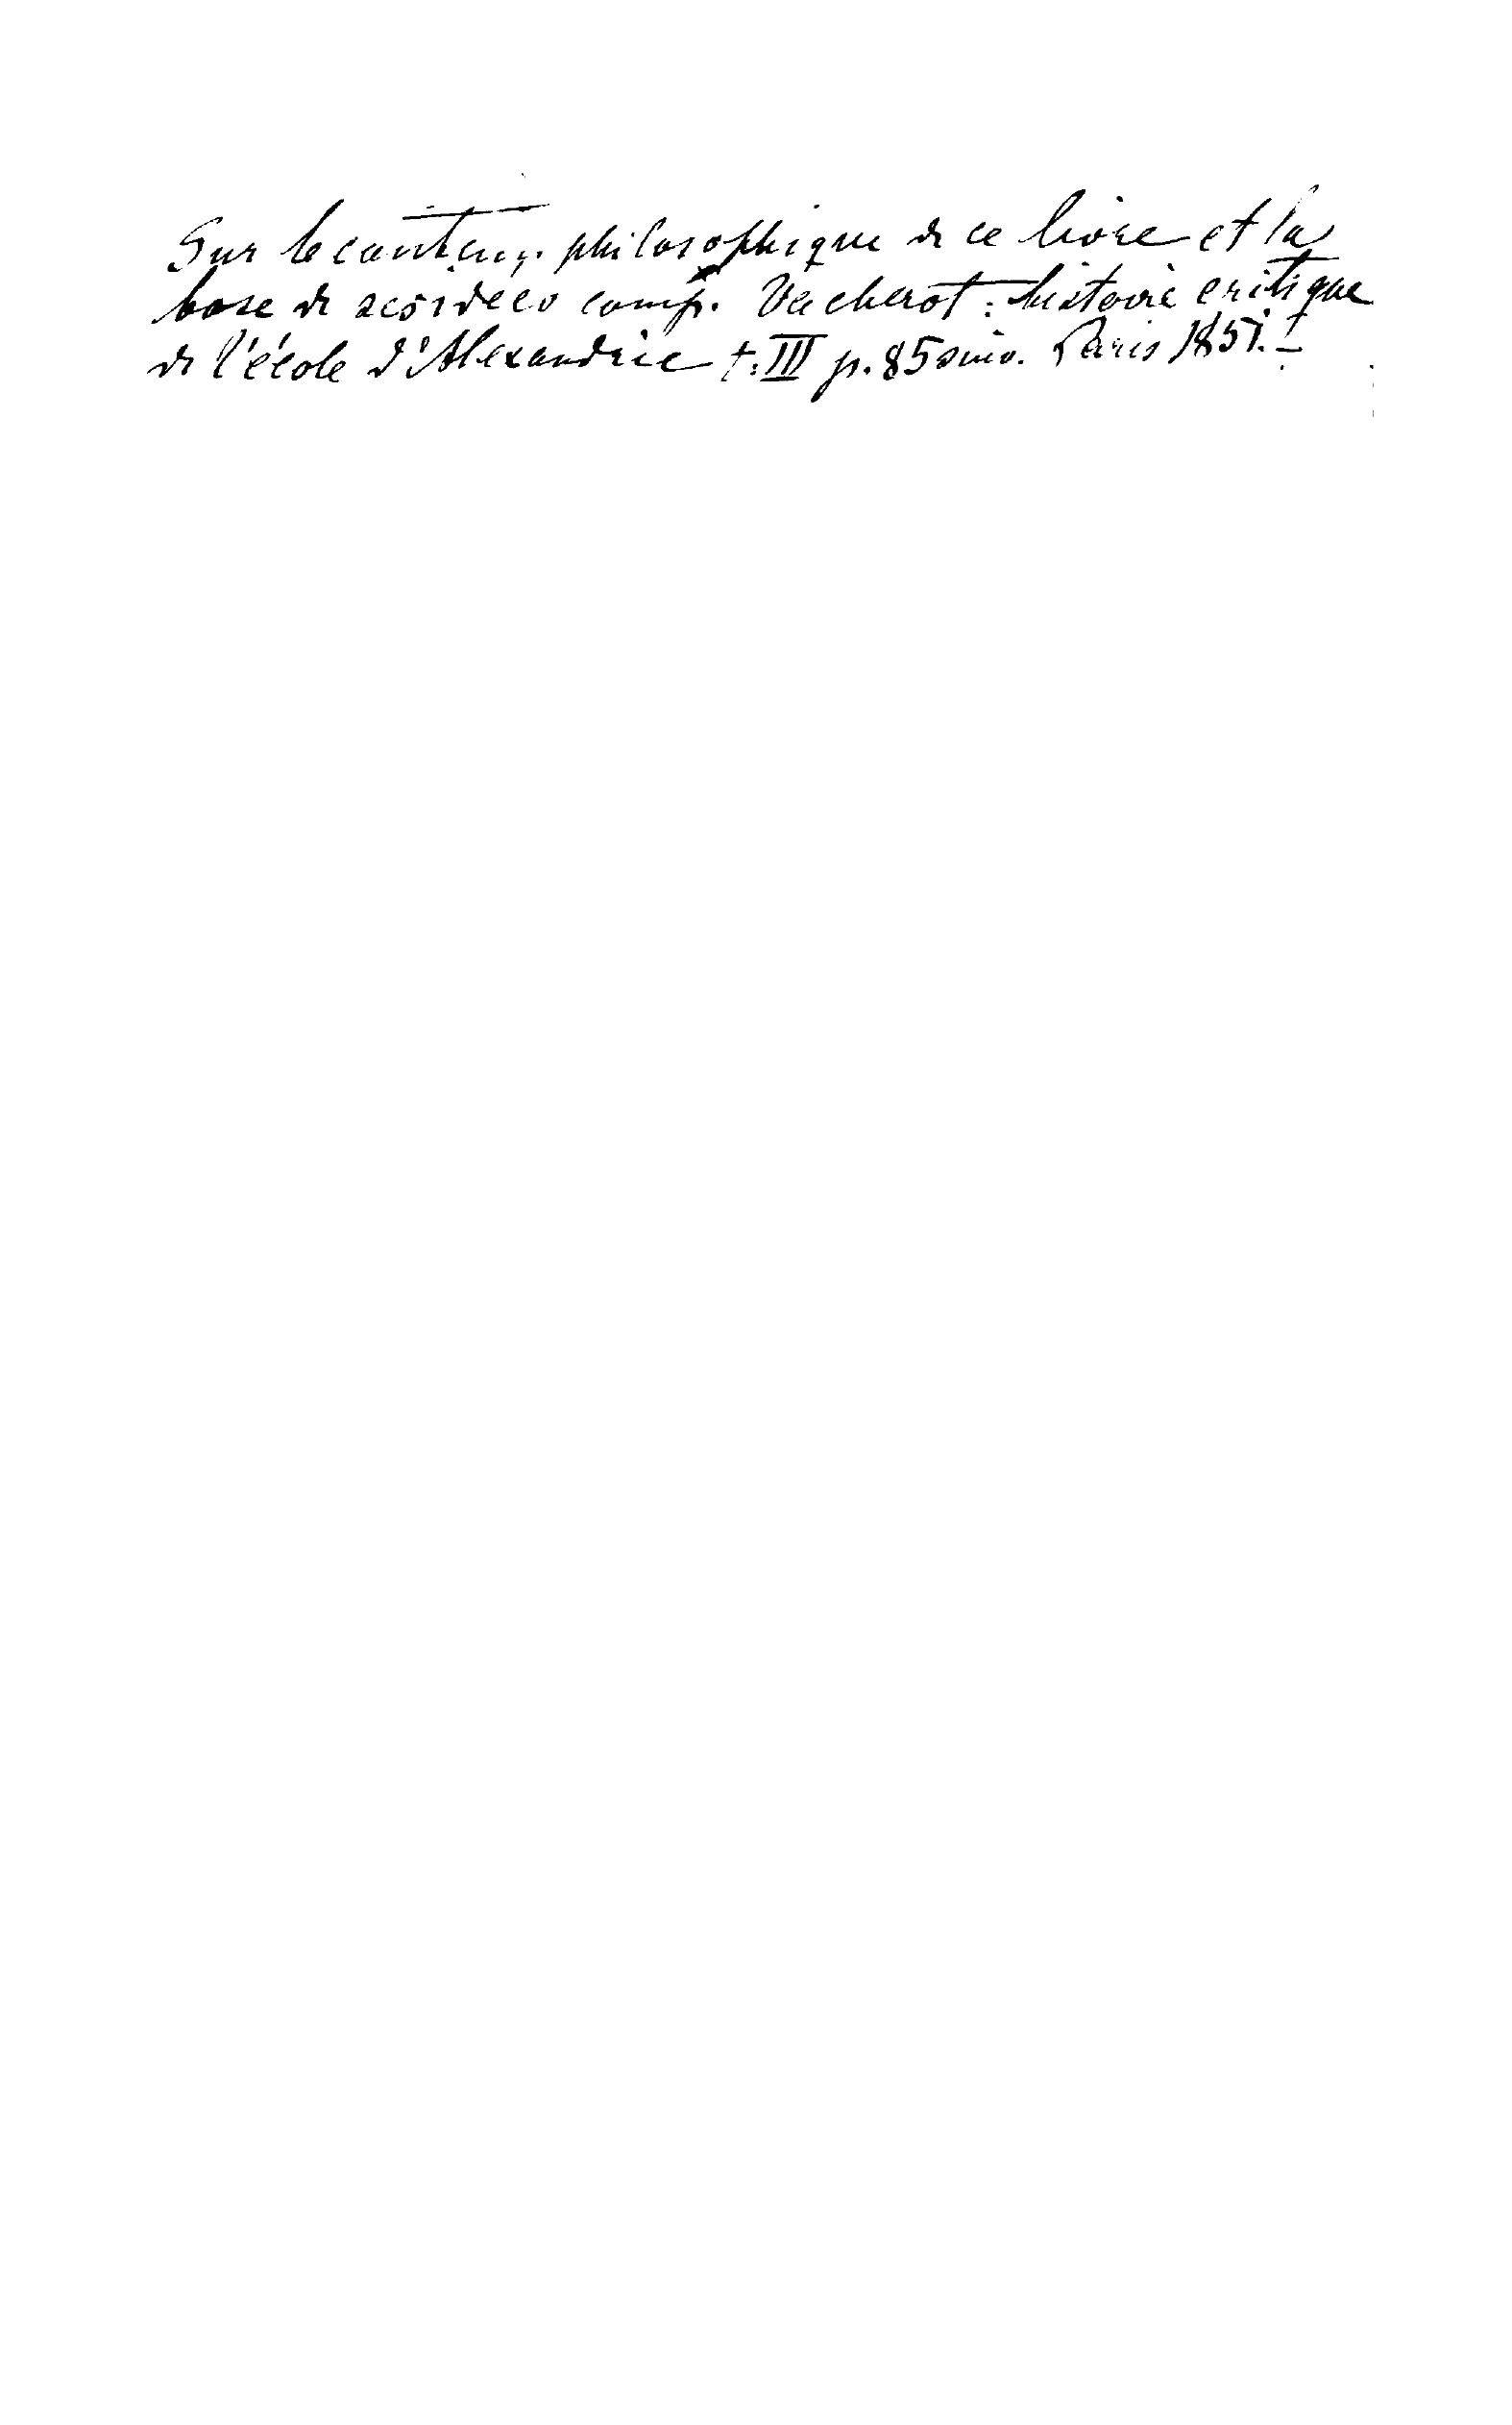 Sur le contenu philosophique de ce livre et la
base de ses idées comp. Vacherot: histoire critique
de l'école d'Alexandrie t. III p. 85 suiv. Paris 1851.